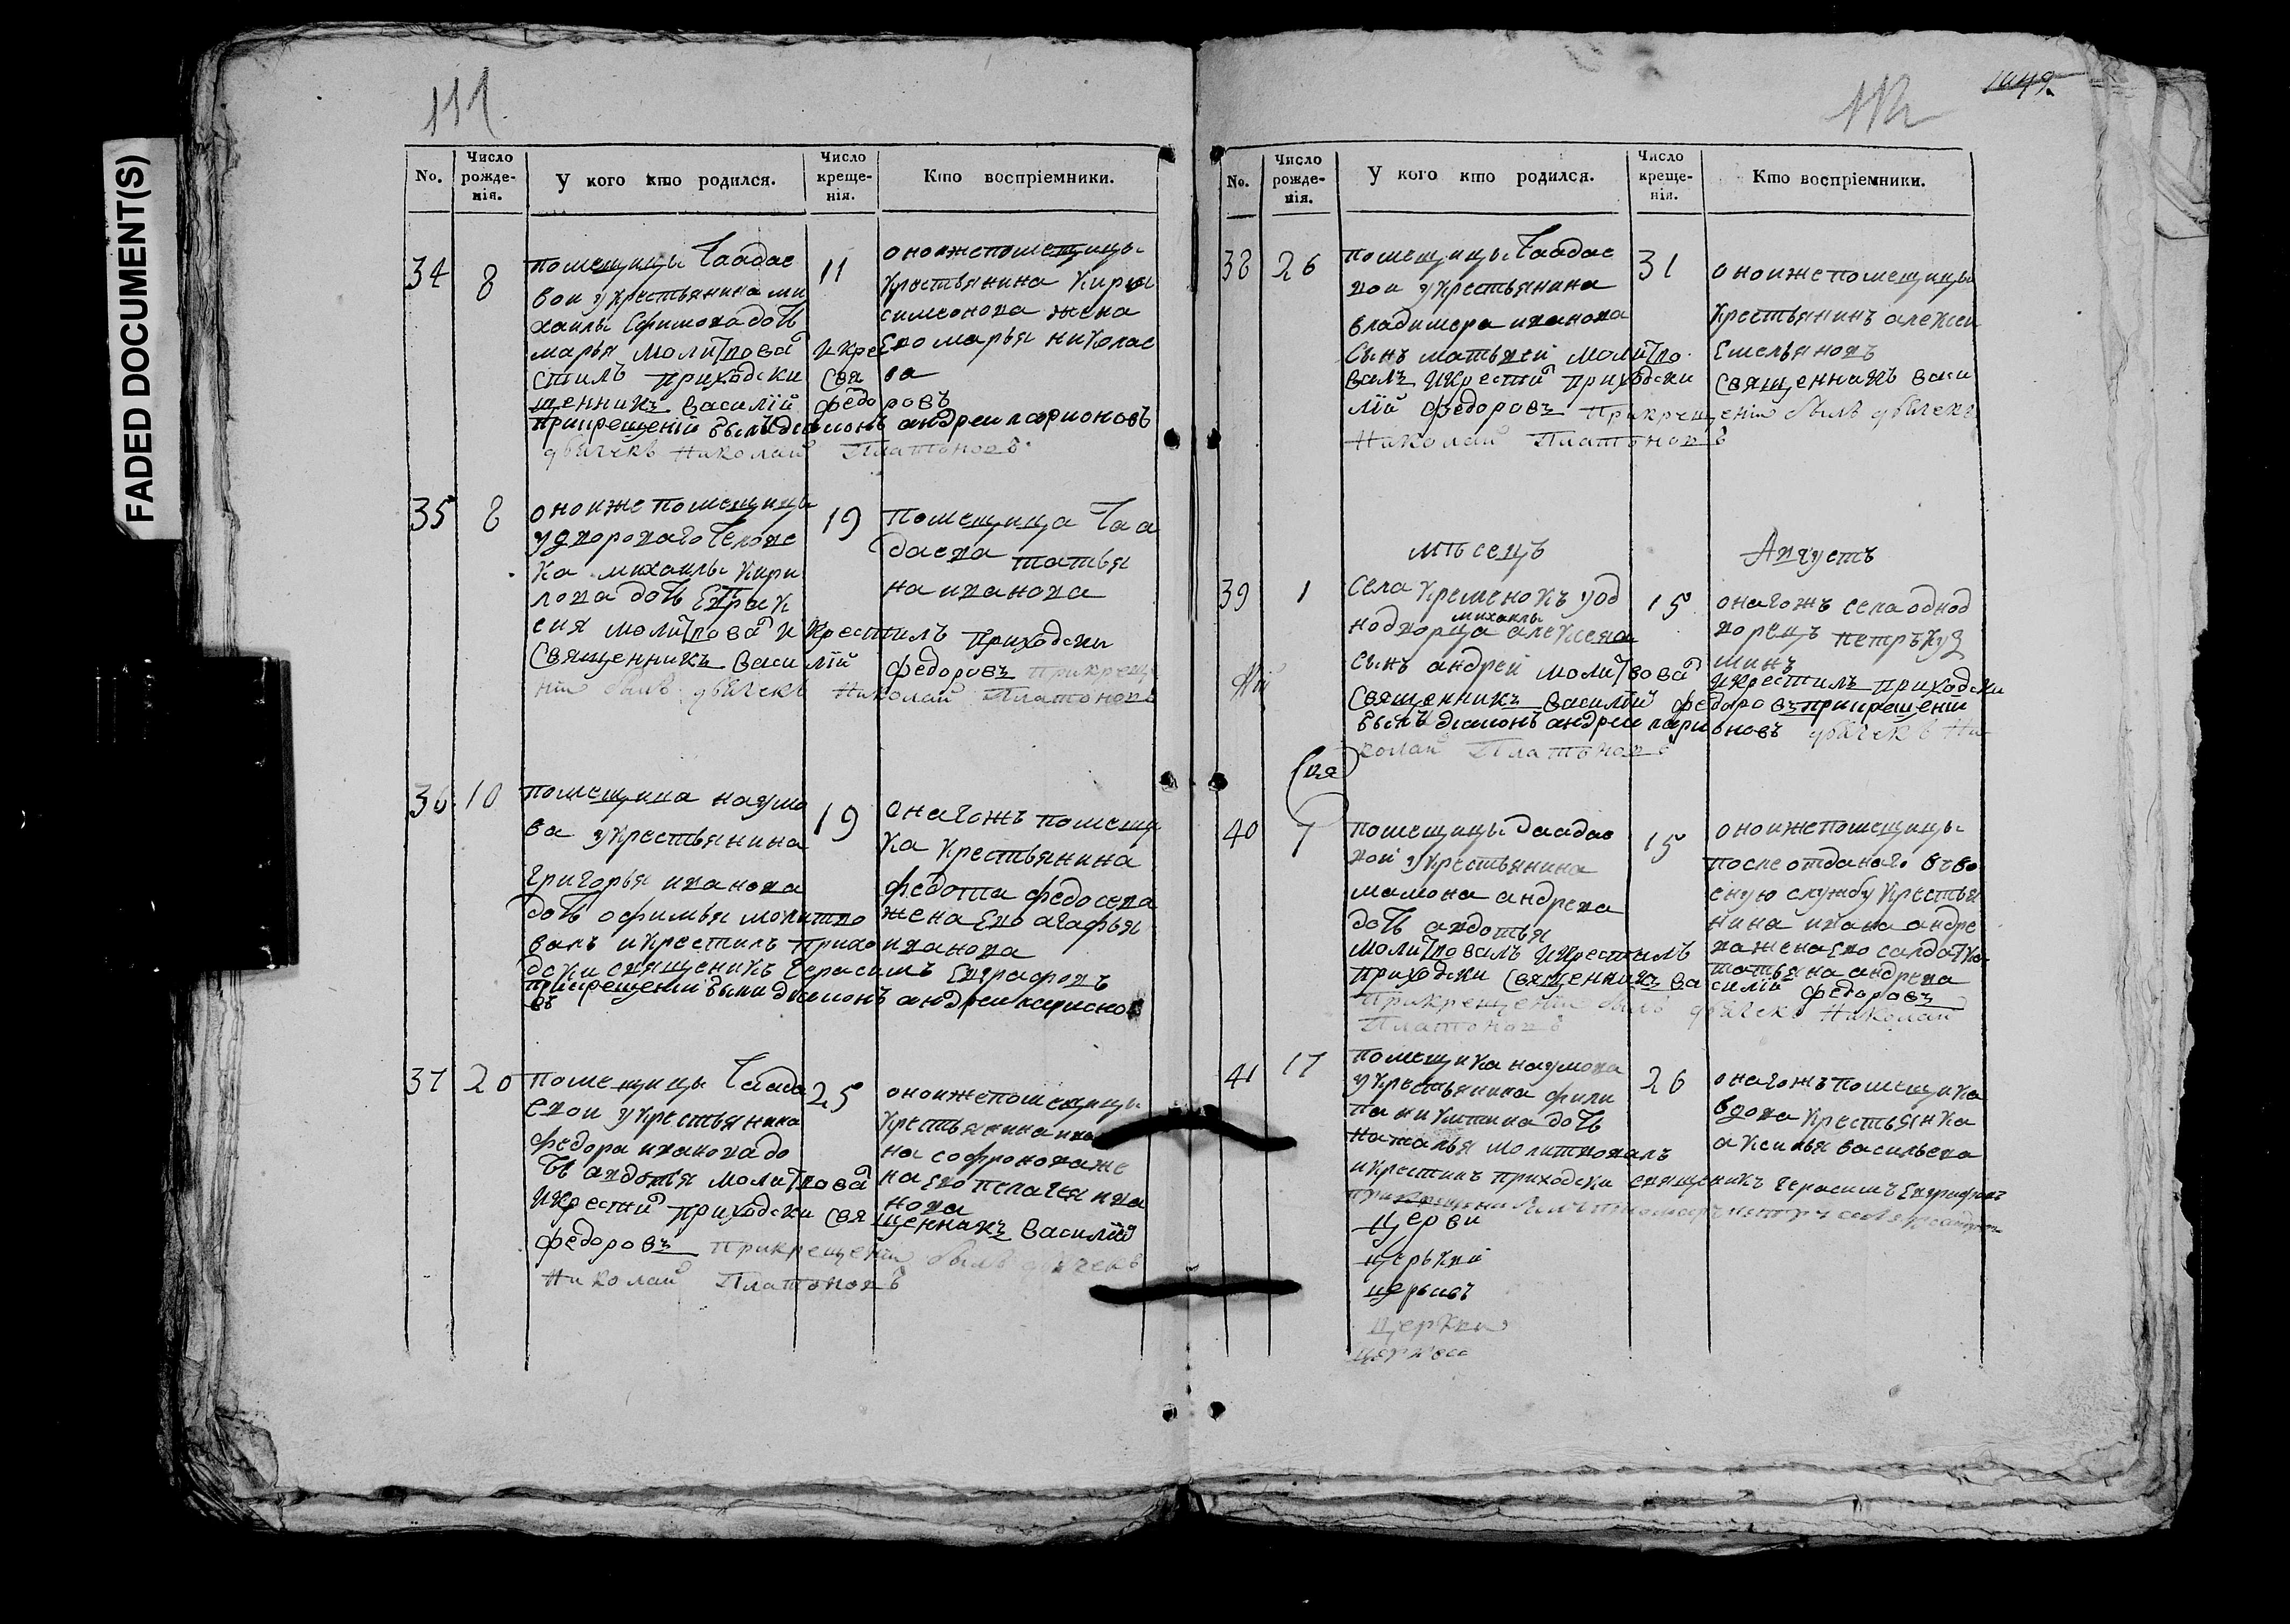 FADED DOCUMENT(S)
111
No.
Число рожде-нія.
У кого кто родился.
Число креще-нія.
Кто воспріемники.
34
8
помещицы Чаадае
вои укрестьянина ми
хаилы Ефимова дочь
марья молитвова и кре
стилъ приходски свя
щенникъ василій федоровъ
прикрещеніи были диаконъ андреи ларионовъ
дьячекъ Николай Платоновъ
11
оноижепомещицы
крестьянина кирил
симеонова жена
Ево марья николае
ва
35
8
оноиже помещицы
удворовагочелове
ка михаилы кири
лова дочь Евпрак
сия молитвова и крестилъ приходски
священникъ василій федоровъ прикреще
ніи былъ дьячекъ Николай Платоновъ
19
помещица Чаа
даева татья
на иванова
36
10
помещика наумо
ва укрестьянина
григорья иванова
дочь офимья молитво
валъ и крестилъ прихо
дски священикъ герасимъ Евграфовъ
прикрещеніи были диаконъ андреи ларионо
въ
19
оногожъ помещи
ка крестьянина
федота федосеева
жена Ево агафья
иванова
37
20
помещицы Чаада
евои укрестьянина
федора иванова до
чь авдотья молитвова
икрестил приходски священникъ василій
федоровъ прикрещеніи былъ дьячекъ
Николай Платоновъ
25
оноижепомещицы
крестьянина ива
на софроноваже
на Ево пелагея ива
нова
112
1049.
No.
Число рожде-нія.
У кого кто родился.
Число креще-нія.
Кто воспріемники.
38
26
помещицы Чаадае
вои укрестьянина
владимера иванова
сынъ матьвей молитво
валъ икрестил приходски священникъ васи
лій федоровъ прикрещеніи былъ дьячекъ
Николай Платоновъ
31
оноижепомещицы
крестьянинъ алексеи
Емельяновъ
мѣсецъ Августъ
39
1
села кременокъ уод
михаилы
нодворца алексеева
сынъ андрей молитвова икрестилъ приходски
священникъ василій федоровъ прикрещеніи
былъ диаконъ андреи ларионовъ дьячекъ Ни
колай Платоновъ
15
оногожъ села однод
ворецъ петръкуз
минъ
40
7
помещицы Чаадае
вой укрестьянина
мамона андреева
дочь авдотья
молитвовалъ икрестилъ
приходски священникъ василій федоровъ
прикрещеніи былъ дьячекъ Николай
Платоновъ
15
оноижепомещицы
после отданаго в во
еную службу крестья
нина ивана андре
ва жена Ево салдатка
татьяна андреева
41
17
помещика наумова
укрестьянина фили
па никитина дочь
наталья молитвовалъ
икрестилъ приходски священикъ герасимъ Евграфовъ
26
оногожъ помещика
вдова крестьянка
аксинья васильева
Церкви
церькви
церковъ
Церкви